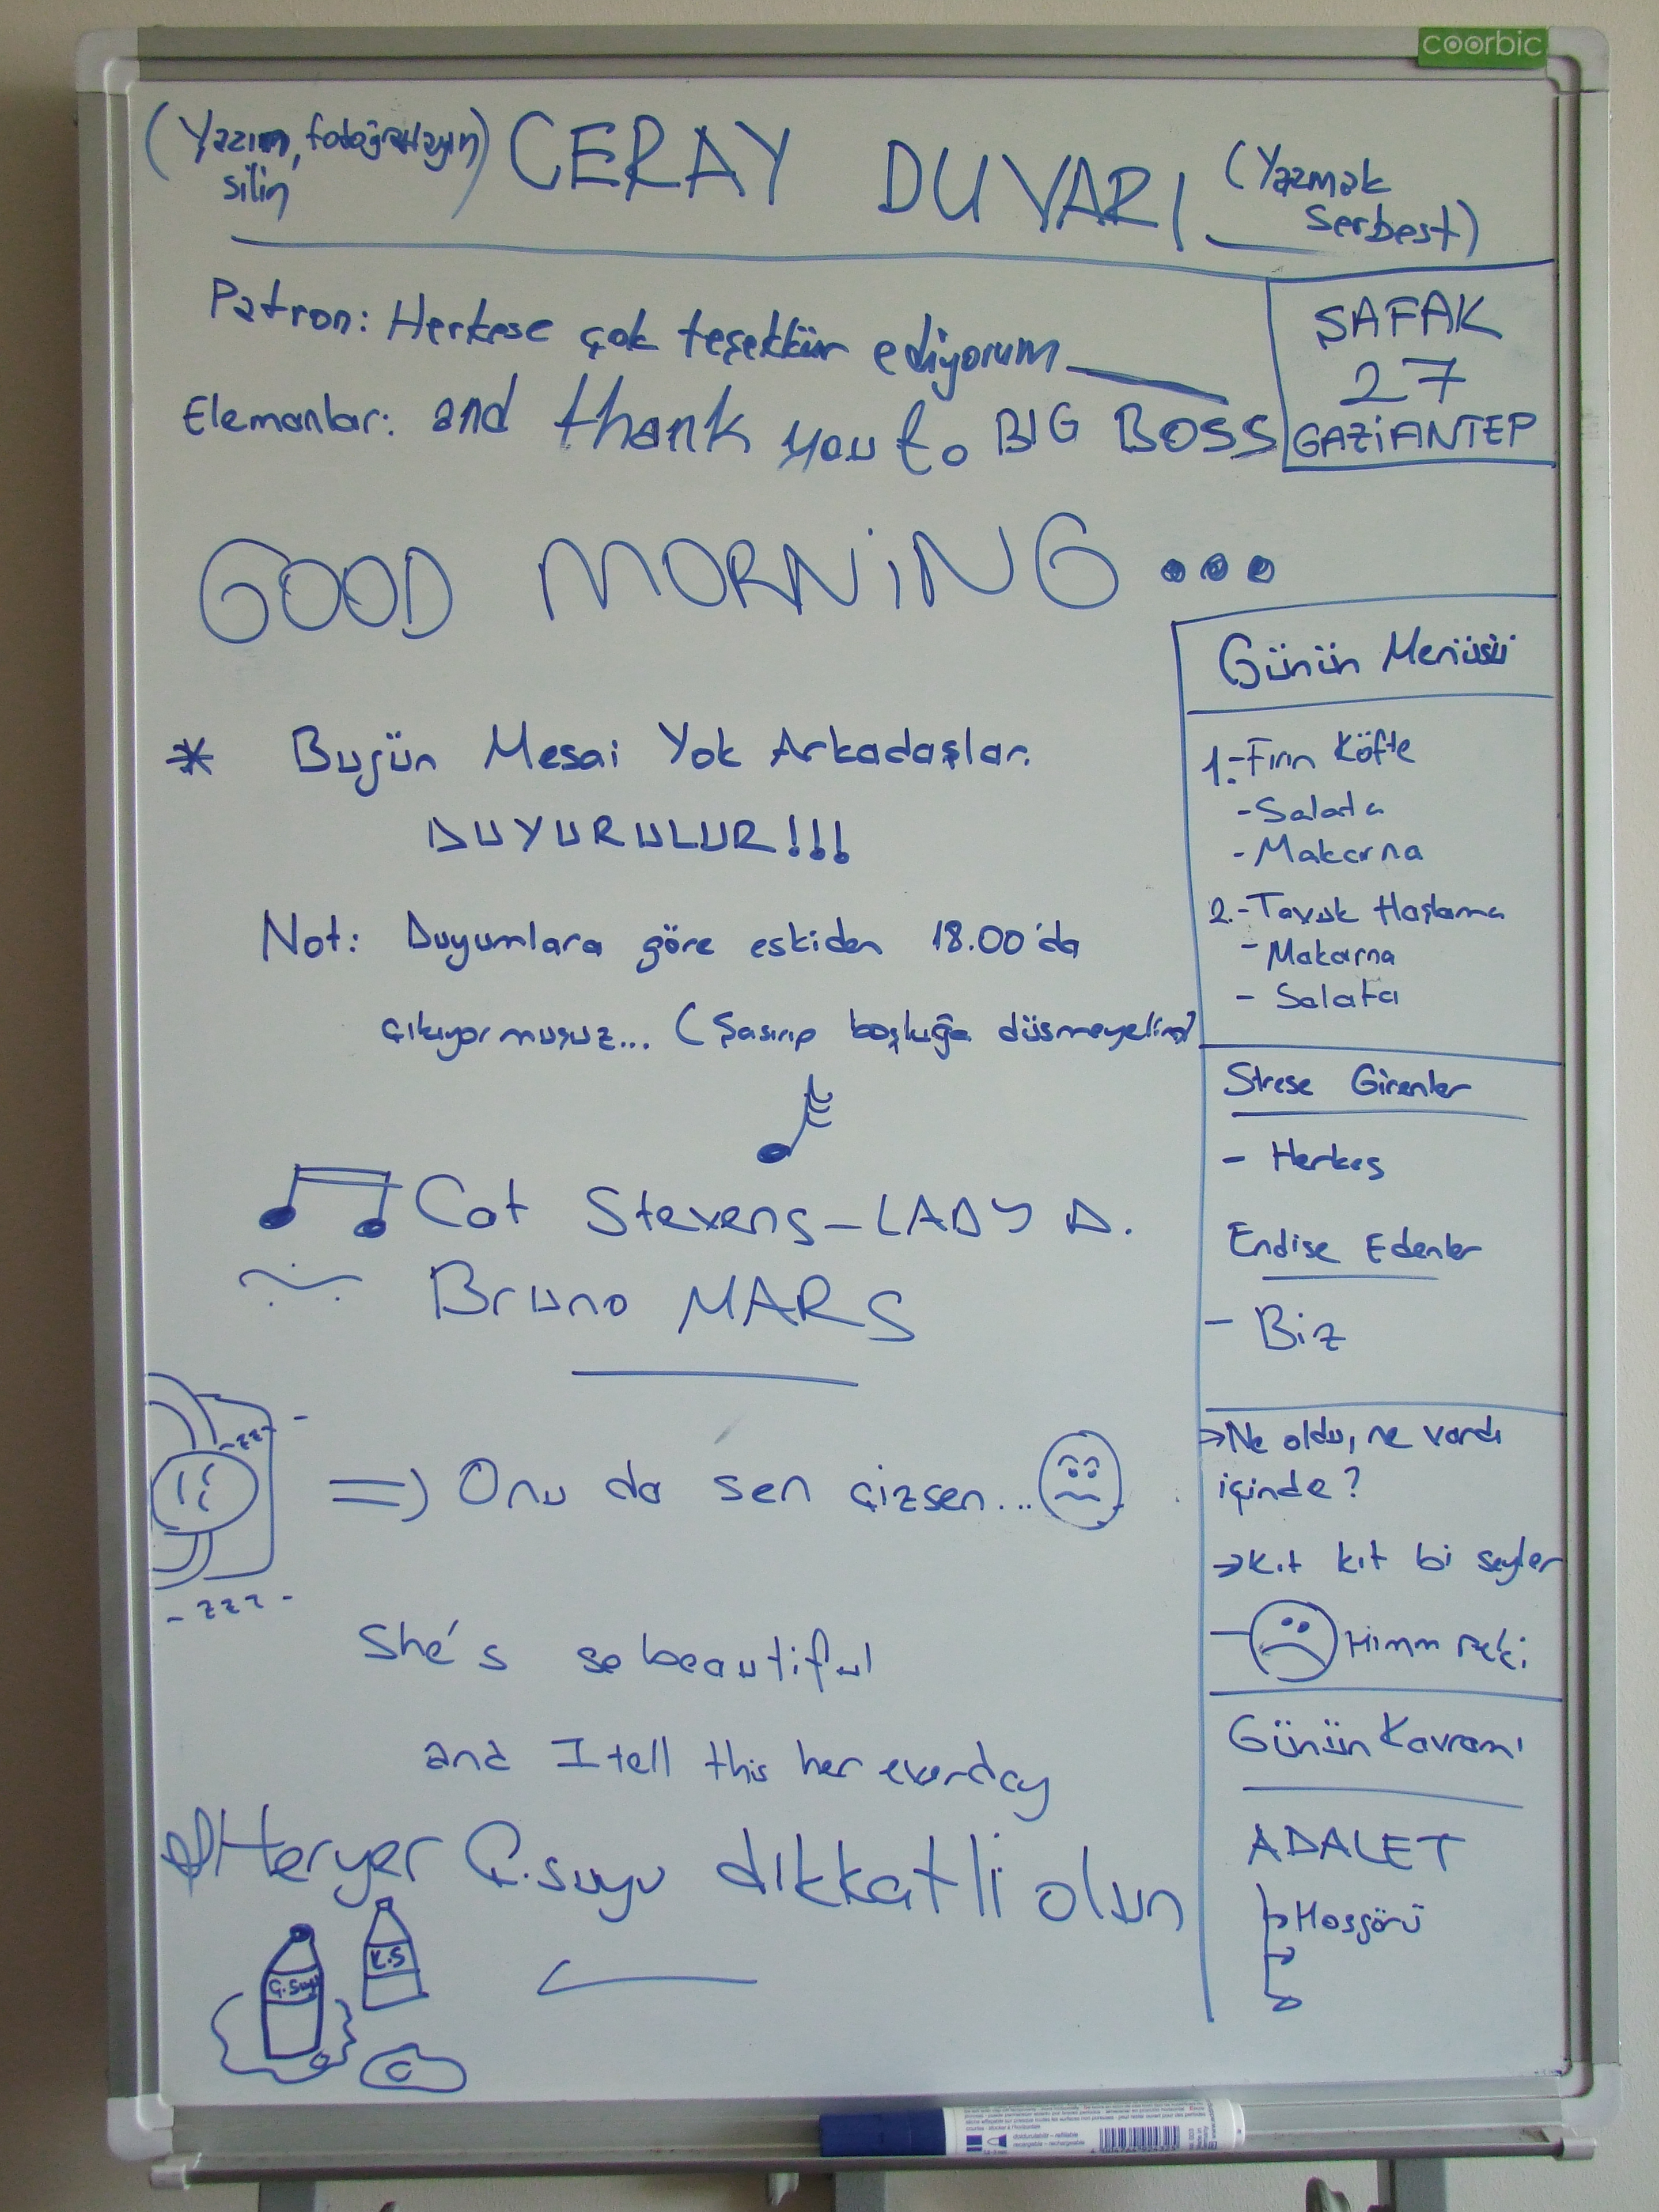 coorbic
(Yazın, fotoğraflayın)
silin
CERAY DUVARI
(Yazmak
serbest)
Patron: Herkese çok teşekkür ediyorum
Elemanlar: and thank you to BIG BOSS
ŞAFAK
27
GAZİANTEP
GOOD MORNİNG...
* Bugün Mesai Yok Arkadaşlar.
DUYURULUR!!!
Not: Duyumlara göre eskiden 18.00'da
çıkıyormuşuz... (Şaşırıp boşluğa düşmeyelim)
Cat Stevens-LADY D.
Bruno MARS
-zzz-
=) Onu da sen çizsen...
-zzz-
She's so beautiful
and I tell this her everday
Heryer Ç.suyu dikkatli olun
Ç.Suyu
K.S
Günün Menüsü
1.-Fırın Köfte
-Salata
-Makarna
2.-Tavuk Haşlama
-Makarna
-Salata
Strese Girenler
- Herkes
Endişe Edenler
- Biz
→Ne oldu, ne vardı
içinde?
→Kıt kıt bi şeyler
Hımm Peki
Günün Kavramı
ADALET
Hoşgörü